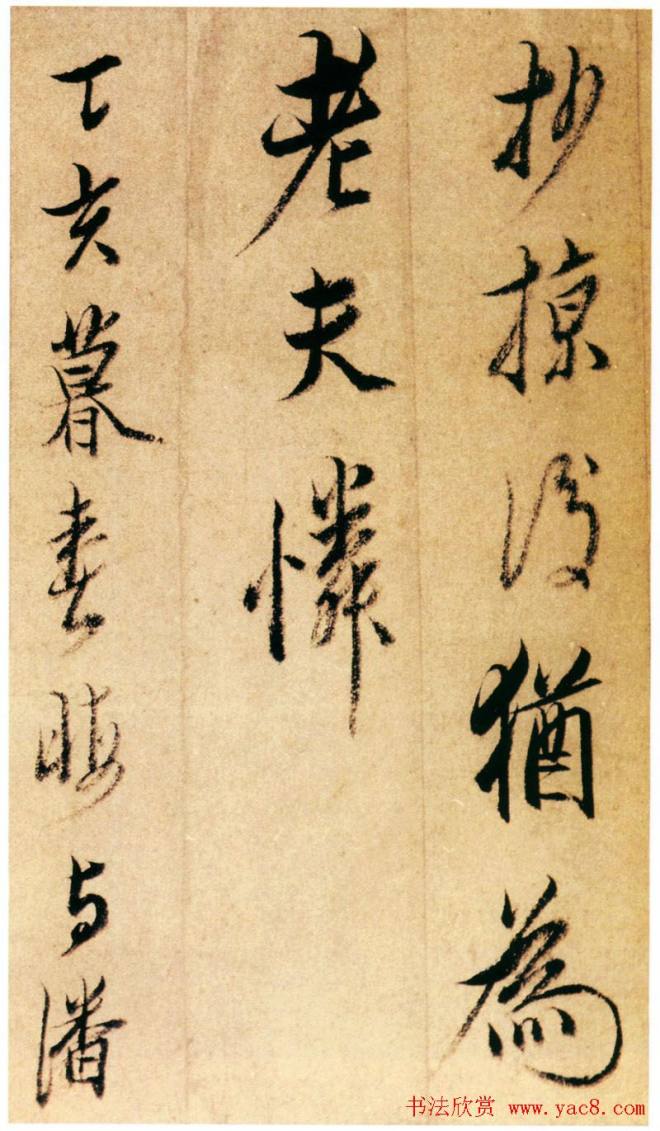 抄掠没猶為
老夫憐
丁亥暮春晦与潘
书法欣赏 www.yac8.com